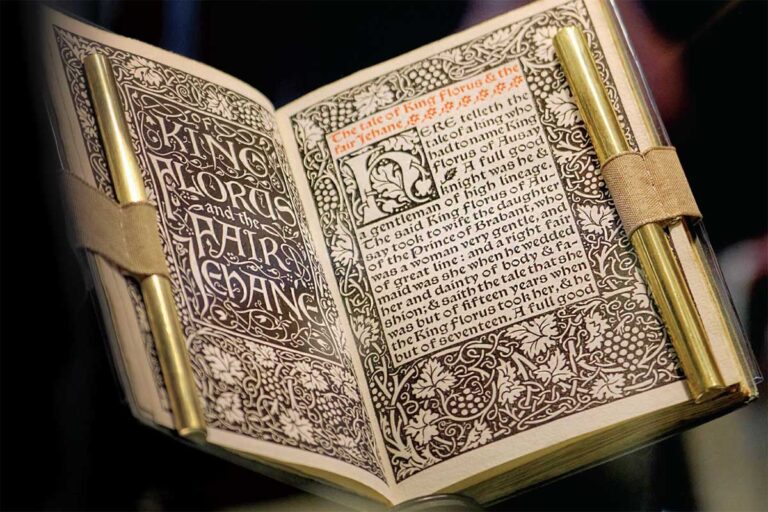 KING
FLORUS
and the
FAIR
JEHANE
The tale of King Florus & the
fair Jehane.
HERE telleth the
tale of a king who
had to name King
Florus of Ausay
. A full good
knight was he &
a gentleman of high lineage.
The said King Florus of Au-
say took to wife the daughter
of the Prince of Brabant, who
was a woman very gentle, and
of great line: and a right fair
maid was she when he wedded
her and dainty of body & fa-
shion; & saith the tale that she
was but of fifteen years when
the King Florus took her, & he
but of seventeen. A full good